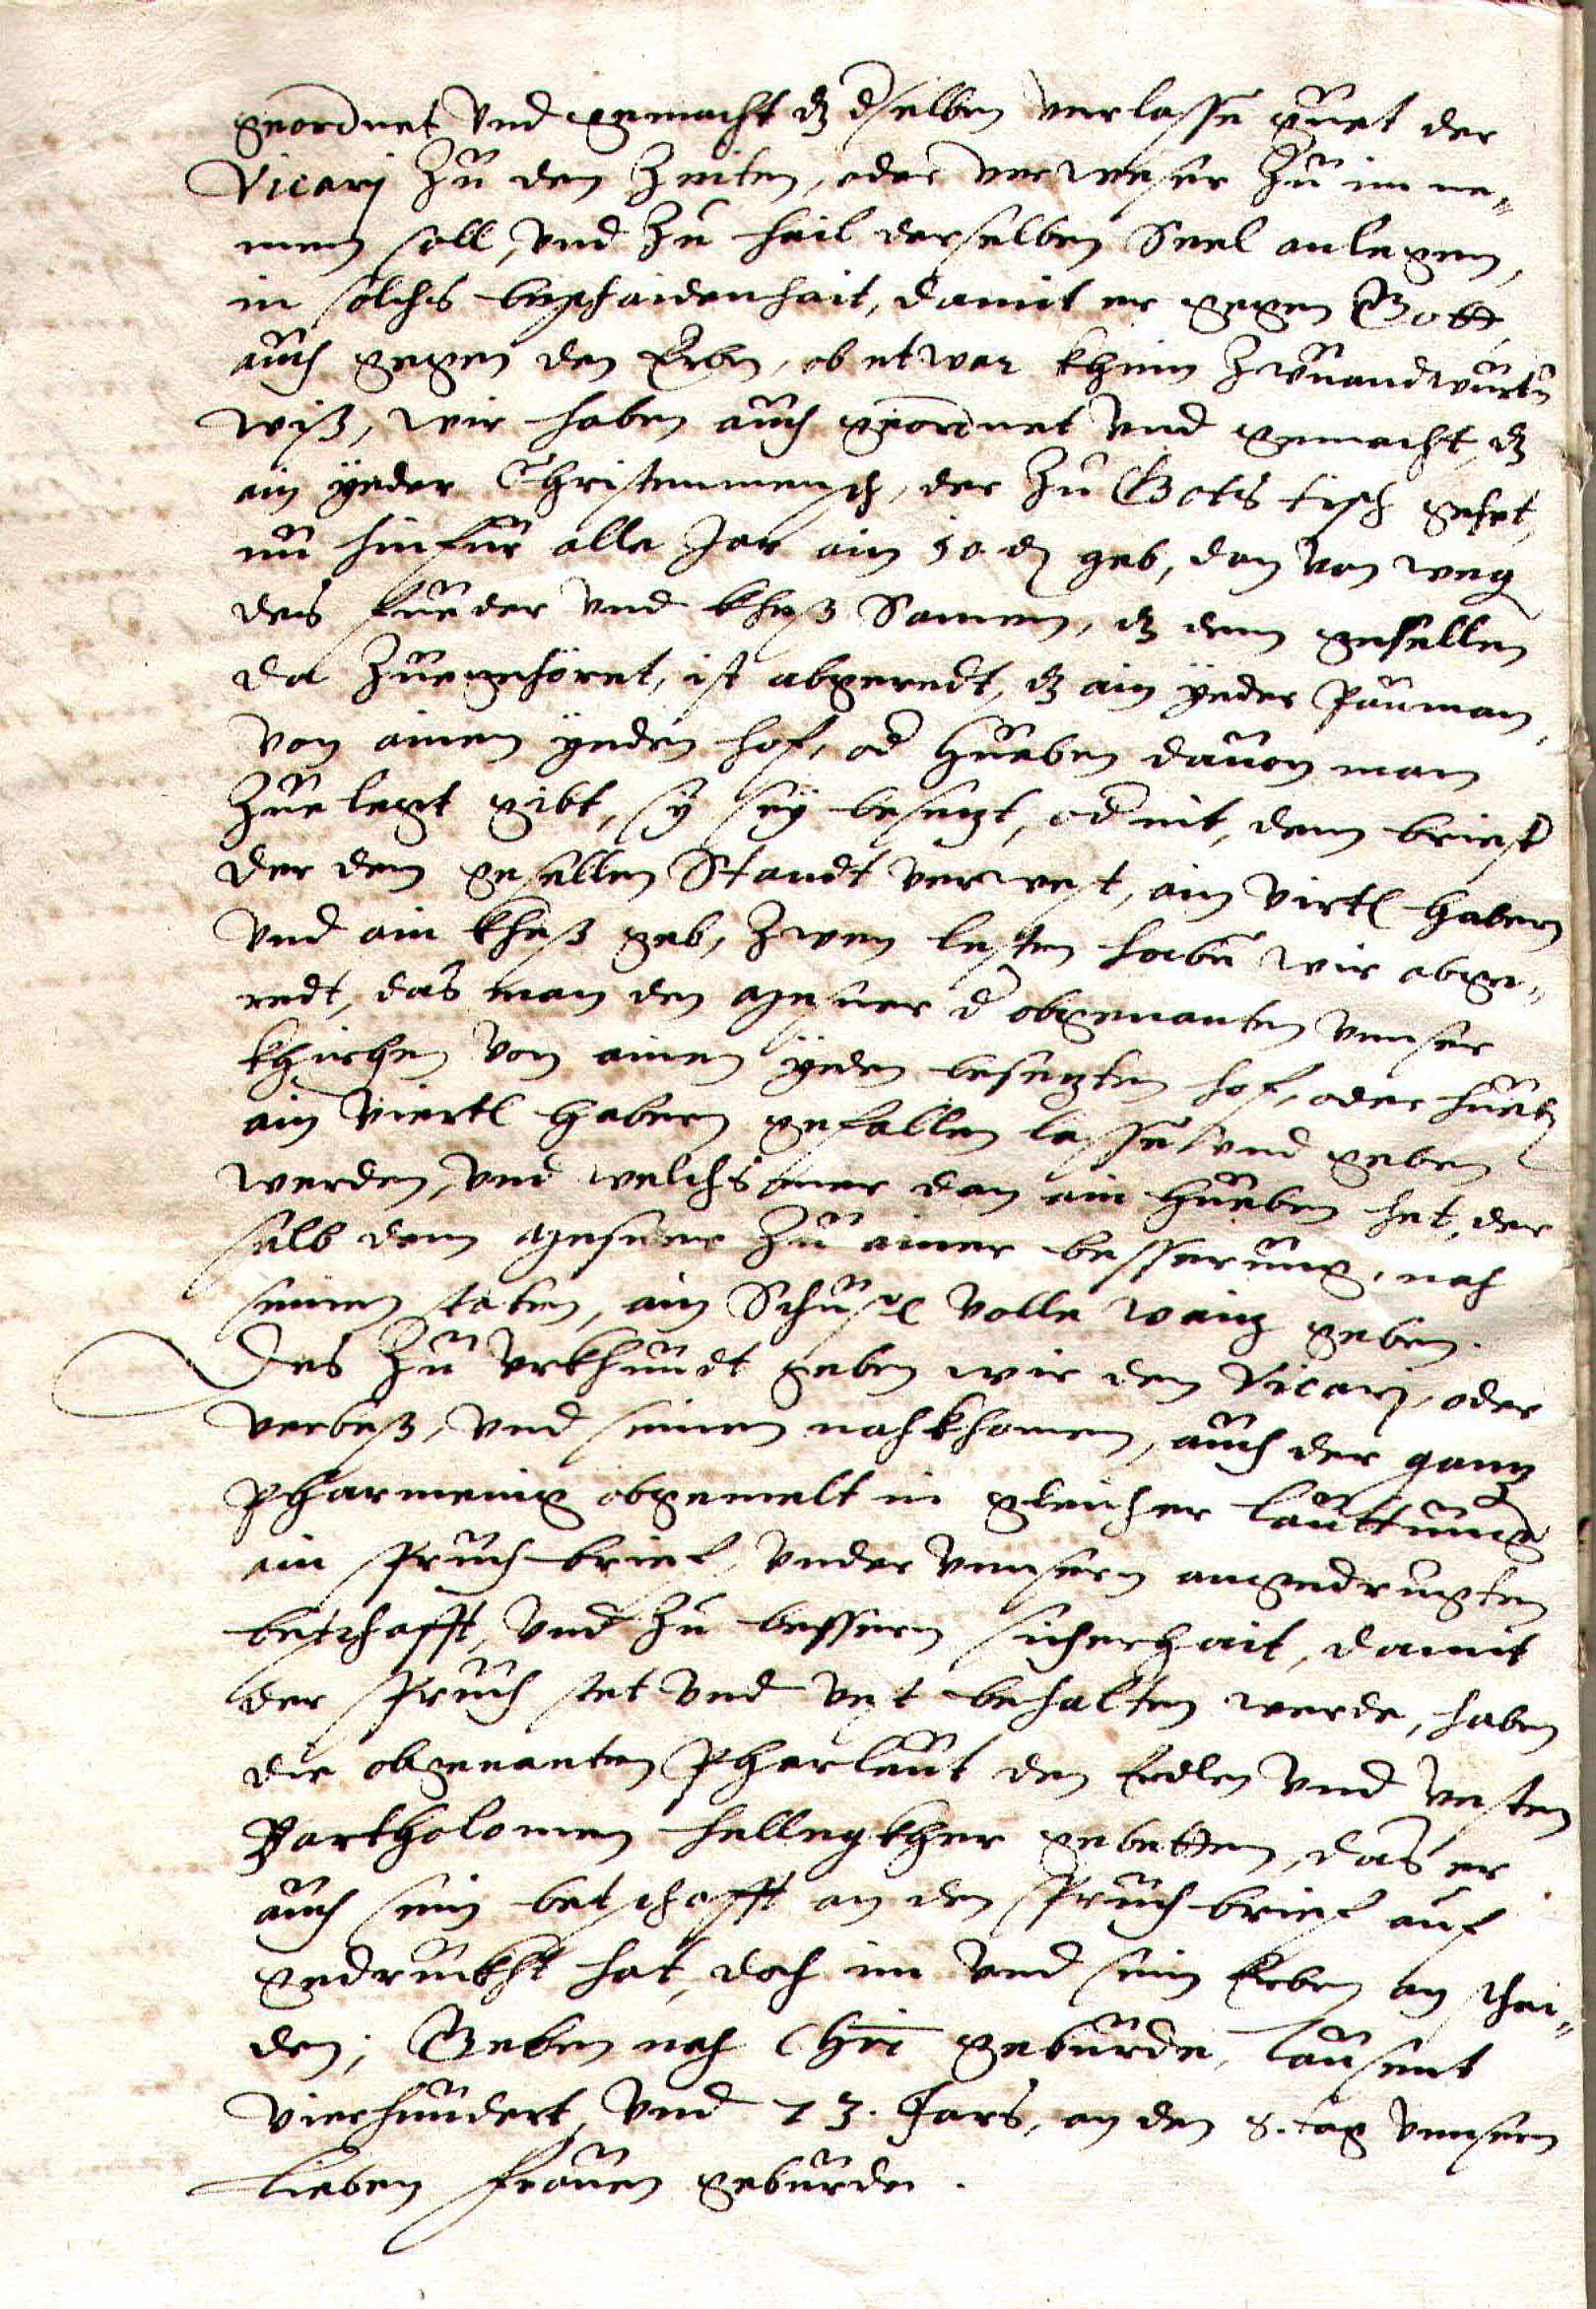 geordnet vnd gemacht dz dselben verlasse guet der
Vicarj zu den Zeiten, oder verweser zu im ne„
men soll, vnd zu hail derselben Seel anlegen,
in solchs beschaidenhait, damit er gegen Gott,
auch gegen den Erbn, ob etwar khem zuuandwurtn
wiß, wir haben auch geordnet vnd gemacht, dz
ain yeder Christenmensch, der zu Gots tisch gehet,
nu hinfur alle Jar ain 10 d geb, dan von weg
des fueder vnd kheß Samen, dz dem gesellen
da zuegehöret, ist abgeredt, dz ain yeder Pauman,
von ainem yeden hof, od Hueben dauon man
zue legt gibt, sy sey besezt, od nit, dem briest
der dem gesellen Standt verwest, ain virtl Habern
vnd ain kheß geb, zwen lesten habn wir abge„
redt, das man den meßner d obgenanten vnser
khirchen von ainem yeden besezten hof, oder hueb
ain Viertl Habern gefallen lasse vnd geben
werden, vnd welchs aner dan ain Hueben het, der
selb dem meßner zu ainer besserung, nach
seinen staten, ain Schüsl volle waiz geben.
Des zu vrkhundt geben wir dem Vicarj, oder
verbeß, vnd seinen nachkhomen, auch der ganz
Pharmenig obgemelt in gleicher lauttung
ain spruch brief, vnder vnsern angedrugten
betschafft, vnd zu bessern sicherhait, damit
der spruch stet vnd vest behalten werde, haben
die obgenanten Pharleut den Edlen vnd vesten
Bartholomen Hellegkher gebetten, das er
auch sein betschafft an den spruch brief auf
gedruckht hat, doch im vnd sein Erben an schai„
den; Geben nach Chri geburde, tausent
Vierhundert, vnd 13. Jars, an den 8. tag vnsern
lieben frauen geburde.